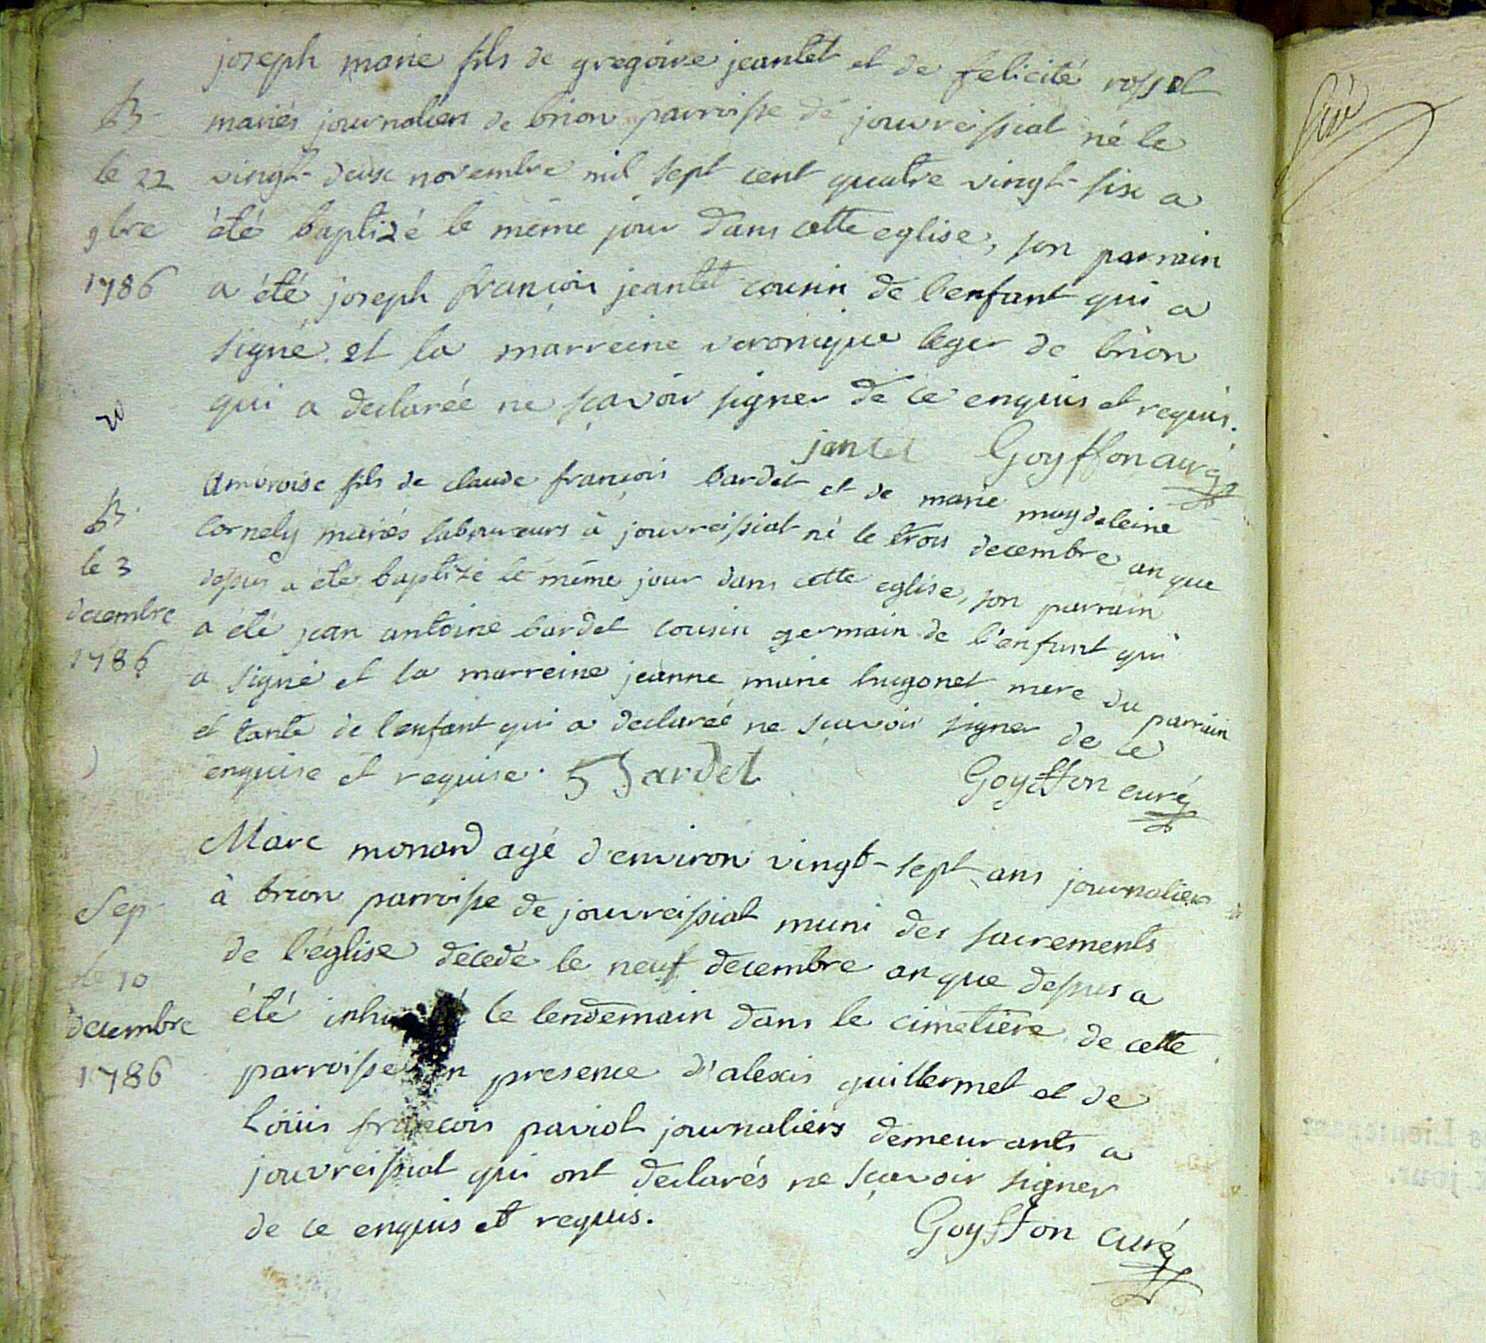 joseph marie fils de gregoire jeantet et de felicité rossel
mariés journaliers de brion parroisse de jouvreissiat né le
vingt-deux novembre mil sept cent quatre vingt-six a
été baptizé le même jour dans cette eglise, son parrain
a été joseph françois jeantet cousin de l'enfant qui a
signé et la marreine veronique leger de brion
qui a declarée ne sçavoir signer de ce enquis et requis.
jantet Goyffon curé
B.
le 22
9bre
1786
ambroise fils de claude françois bardet et de marie magdeleine
Cornely mariés laboureurs à jouvreissiat né le trois decembre an que
dessus a été baptizé le même jour dans cette eglise, son parrain
a été jean antoine bardet cousin germain de l'enfant qui
a signé et la marreine jeanne marie hugonet mere du parrain
et tante de l'enfant qui a declareé ne sçavoir signer de ce
enquise et requise. Bardet Goyffon curé
B.
le 3
decembre
1786
Marc monard agé d'environ vingt-sept ans journalier
à brion parroisse de jouvreissiat muni des sacrements
de l'église decedé le neuf decembre an que dessus a
été inhumé le lendemain dans le cimetière de cette
parroisse en presence d'alexis guillermet et de
Loüis françois paviot journaliers demeurants a
jouvreissiat qui ont declarés ne sçavoir signer
de ce enquis et requis. Goyffon curé
Sep
le 10
decembre
1786